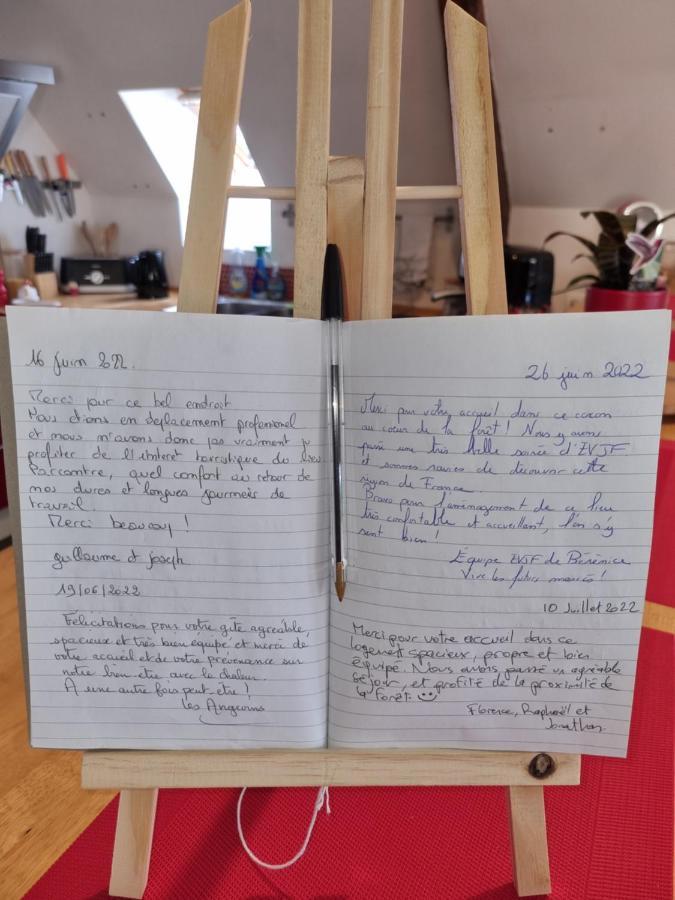 16 juin 2022.
Merci pour ce bel endroit
Nous étions en déplacement professionnel
et nous n'avons donc pas vraiment pu
profiter de l'intéret touristique du lieu
Par contre, quel confort au retour de
nos dures et longues journées de
travail.
Merci beaucoup !
guillaume et joseph
19/06/2022
Félicitations pour votre gîte agréable,
spacieux et très bien équipé et merci de
votre accueil et de votre prévenance sur
notre bien être avec la chaleur.
A une autre fois peut-être !
Les Angevins
26 juin 2022
Merci pour votre accueil dans ce cocon
au coeur de la forêt ! Nous y avons
passé une très belle soirée d'EVJF
et sommes ravies de découvrir cette
région de France.
Bravo pour l'aménagement de ce lieu
très confortable et accueillant, l'on s'y
sent bien !
Équipe EVJF de Bérénice
Vive les futurs mariés !
10 Juillet 2022
Merci pour votre accueil dans ce
logement spacieux, propre et bien
équipé. Nous avons passé un agréable
séjour, et profité de la proximité de
la forêt. ☺
Florence, Raphaël et
Jonathan.